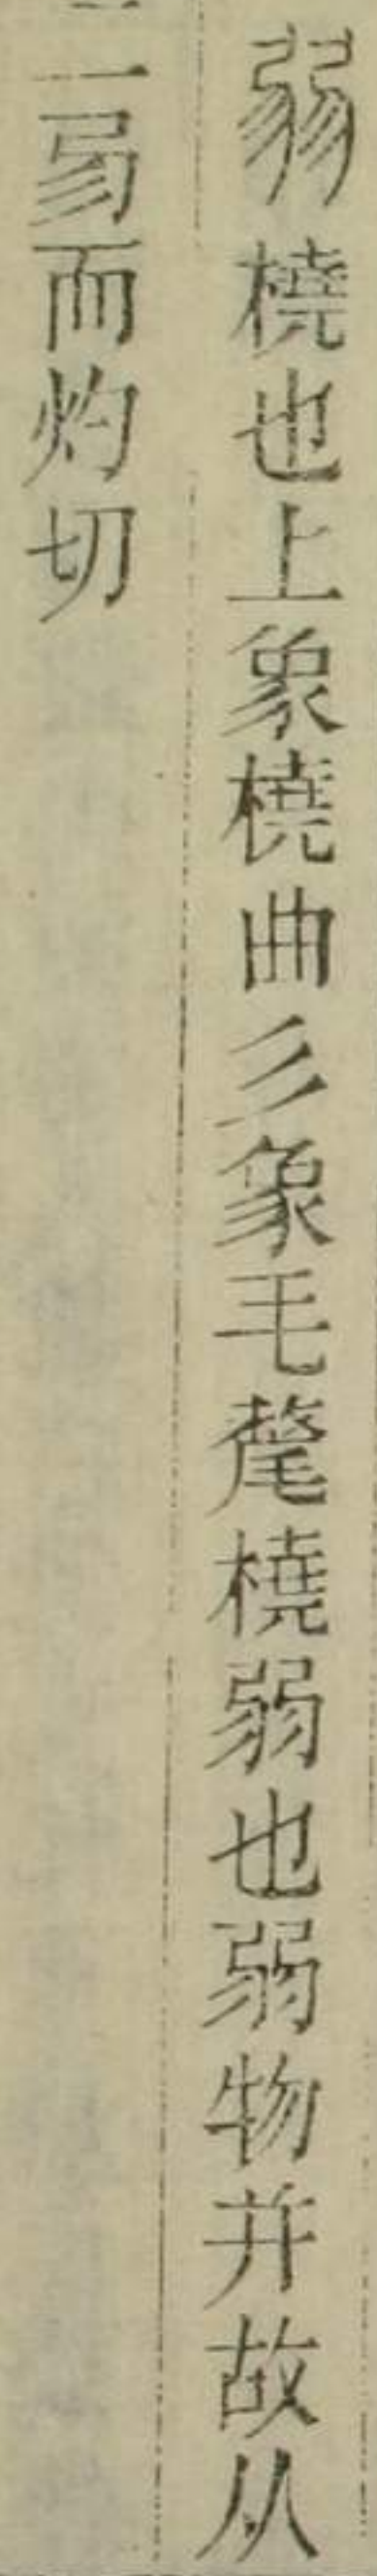 弱橈也上象橈曲彡象毛氂橈弱也弱物并故从
二㢱而灼切